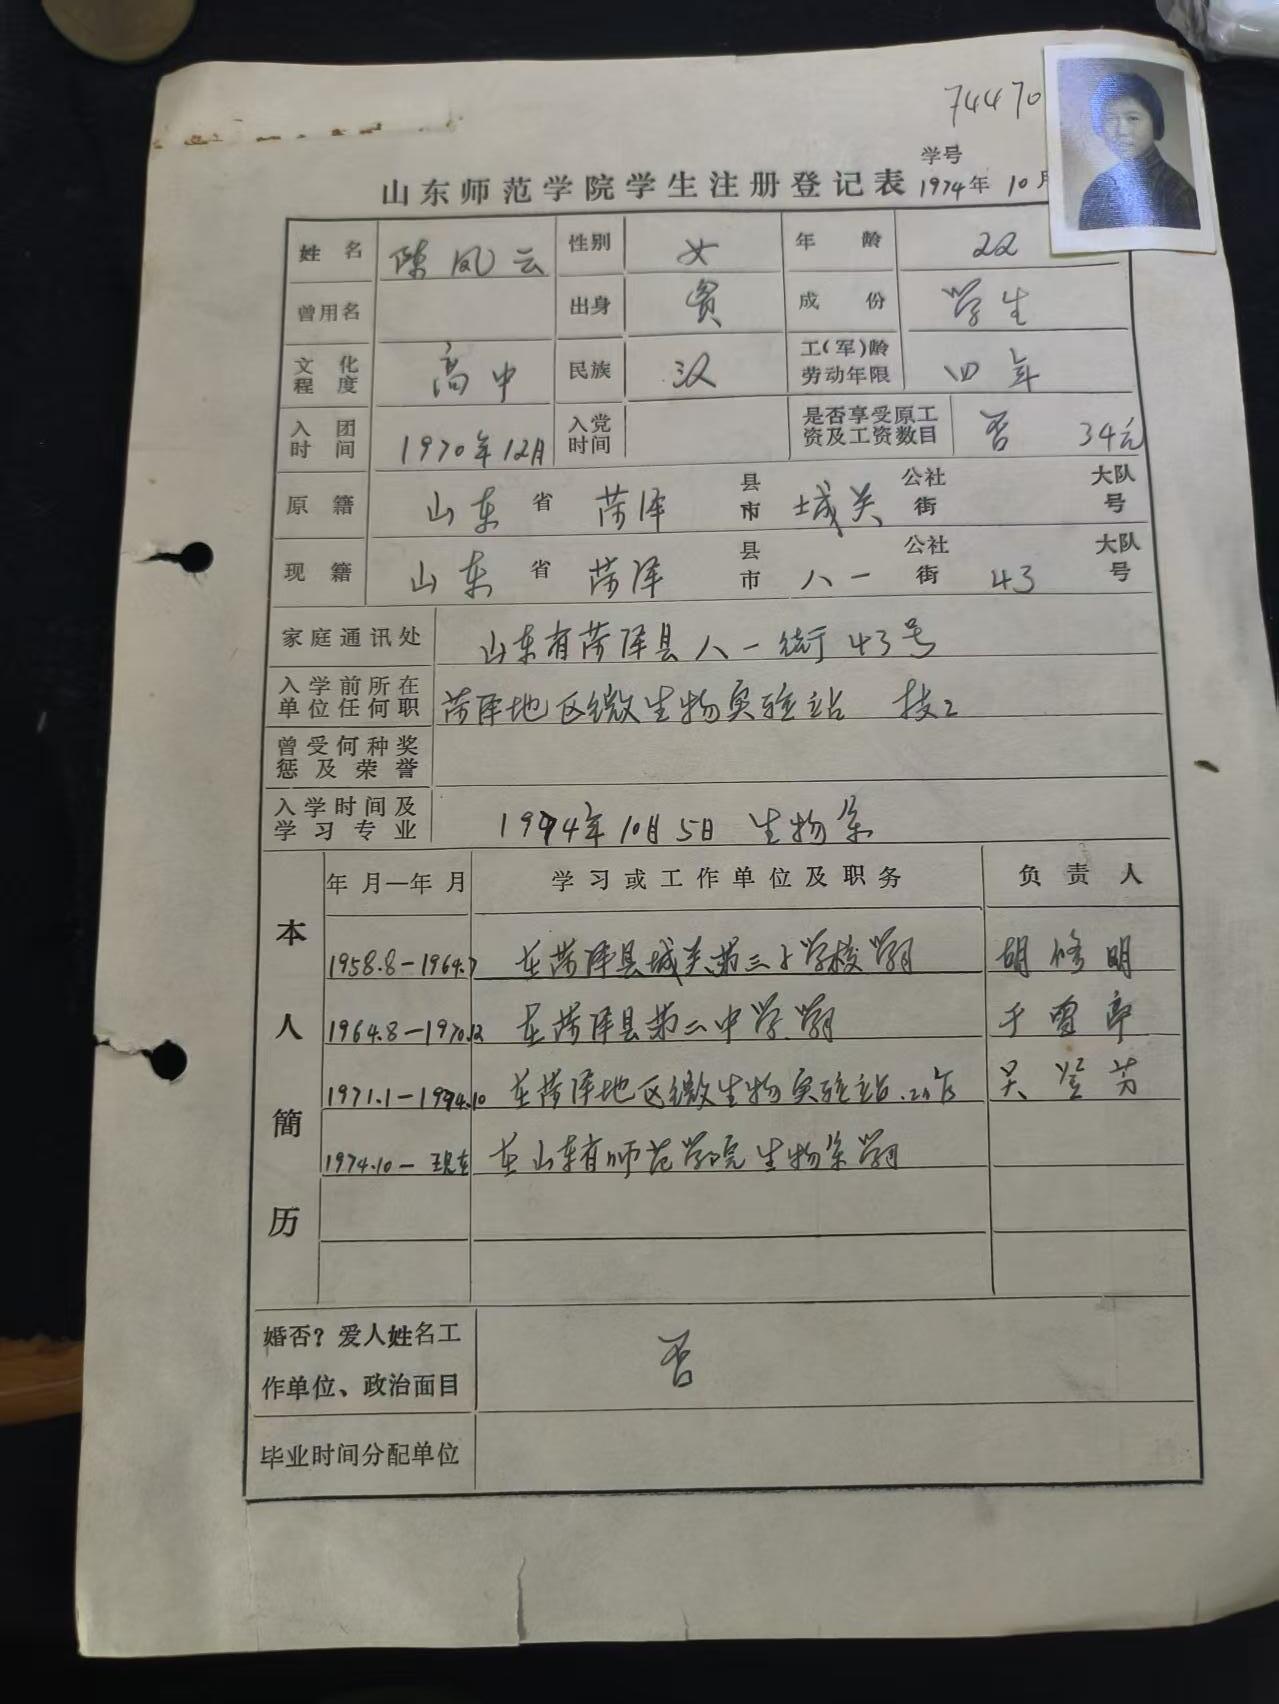 74470
学号
山东师范学院学生注册登记表 1974年 10月
姓名 陈凤云 性别 女 年龄 22
曾用名 出身 贫 成份 学生
文化程度 高中 民族 汉 工(军)龄劳动年限 四年
入团时间 1970年12月 入党时间 是否享受原工资及工资数目 否 34元
原籍 山东省 菏泽 县市 城关 公社街 大队号
现籍 山东省 菏泽 县市 八一 公社街 43 大队号
家庭通讯处 山东省菏泽县八一街43号
入学前所在单位任何职 菏泽地区微生物实验站 技工
曾受何种奖惩及荣誉
入学时间及学习专业 1974年10月5日 生物系
本人简历
年月—年月 学习或工作单位及职务 负责人
1958.8—1964.7 在菏泽县城关第三小学校学习 胡修明
1964.8—1970.12 在菏泽县第二中学学习 于雪亭
1971.1—1974.10 在菏泽地区微生物实验站.工作 吴登芳
1974.10—现在 在山东省师范学院生物系学习
婚否?爱人姓名工作单位、政治面目 否
毕业时间分配单位